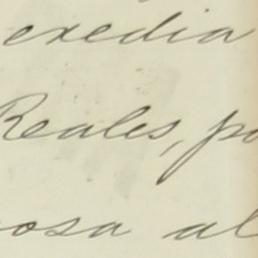 exedia
Reales, po
osa al